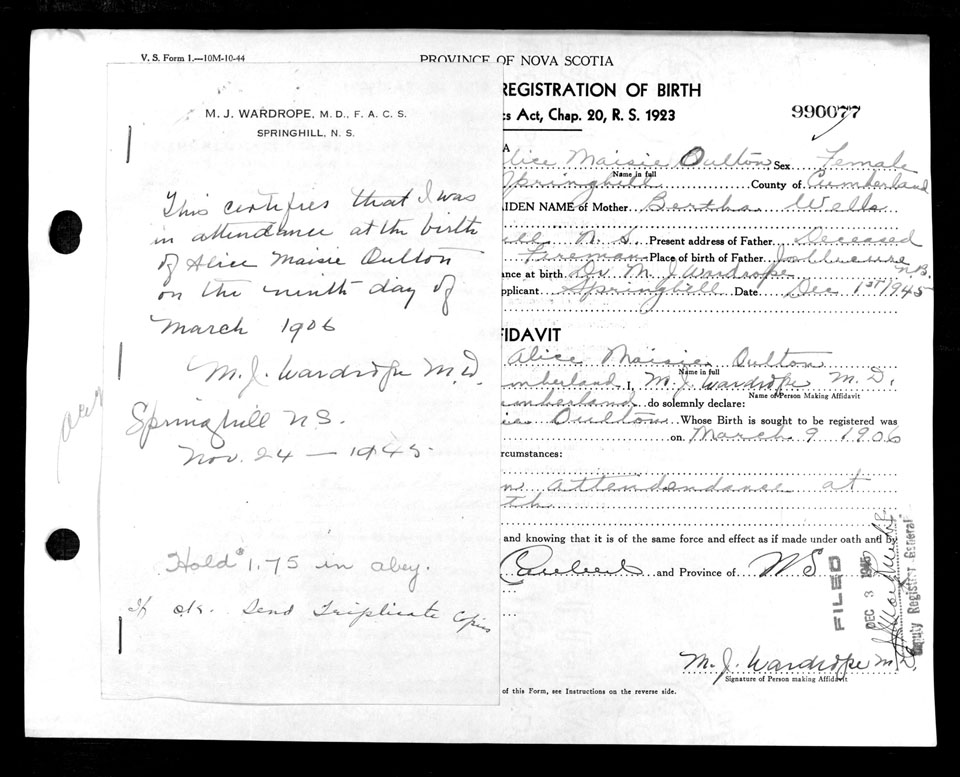 V. S. Form 1.—10M-10-44
PROVINCE OF NOVA SCOTIA
M. J. WARDROPE, M.D., F.A.C.S.
SPRINGHILL, N. S.
This certifies that I was
in attendance at the birth
of Alice Maisie Oulton
on the ninth day of
March 1906
M. J. Wardrope M.D.
Springhill N.S.
Nov. 24 — 1945.
Hold $1.75 in abey.
If ok. Send Triplicate Copies
REGISTRATION OF BIRTH
s Act, Chap. 20, R. S. 1923
990077
A
lice Maisie Oulton Sex Female
Name in full
Springhill County of Cumberland
IDEN NAME of Mother Bertha Wells
ill N.S. Present address of Father Deceased
Fireman Place of birth of Father N.B.
nce at birth Dr. M. J. Wardrope
pplicant Springhill Date Dec 1st 1945
FIDAVIT
Alice Maisie Oulton
Name in full
mberland I, M. J. Wardrope M.D.
Name of Person Making Affidavit
mberland do solemnly declare:
ie Oulton Whose Birth is sought to be registered was
on March 9 1906
ircumstances:
n attendendance at
th
and knowing that it is of the same force and effect as if made under oath and b
and Province of NS
FILED
DEC 3 1945
Deputy Registrar General
M. J. Wardrope M
Signature of Person making Affidavit
of this Form, see Instructions on the reverse side.